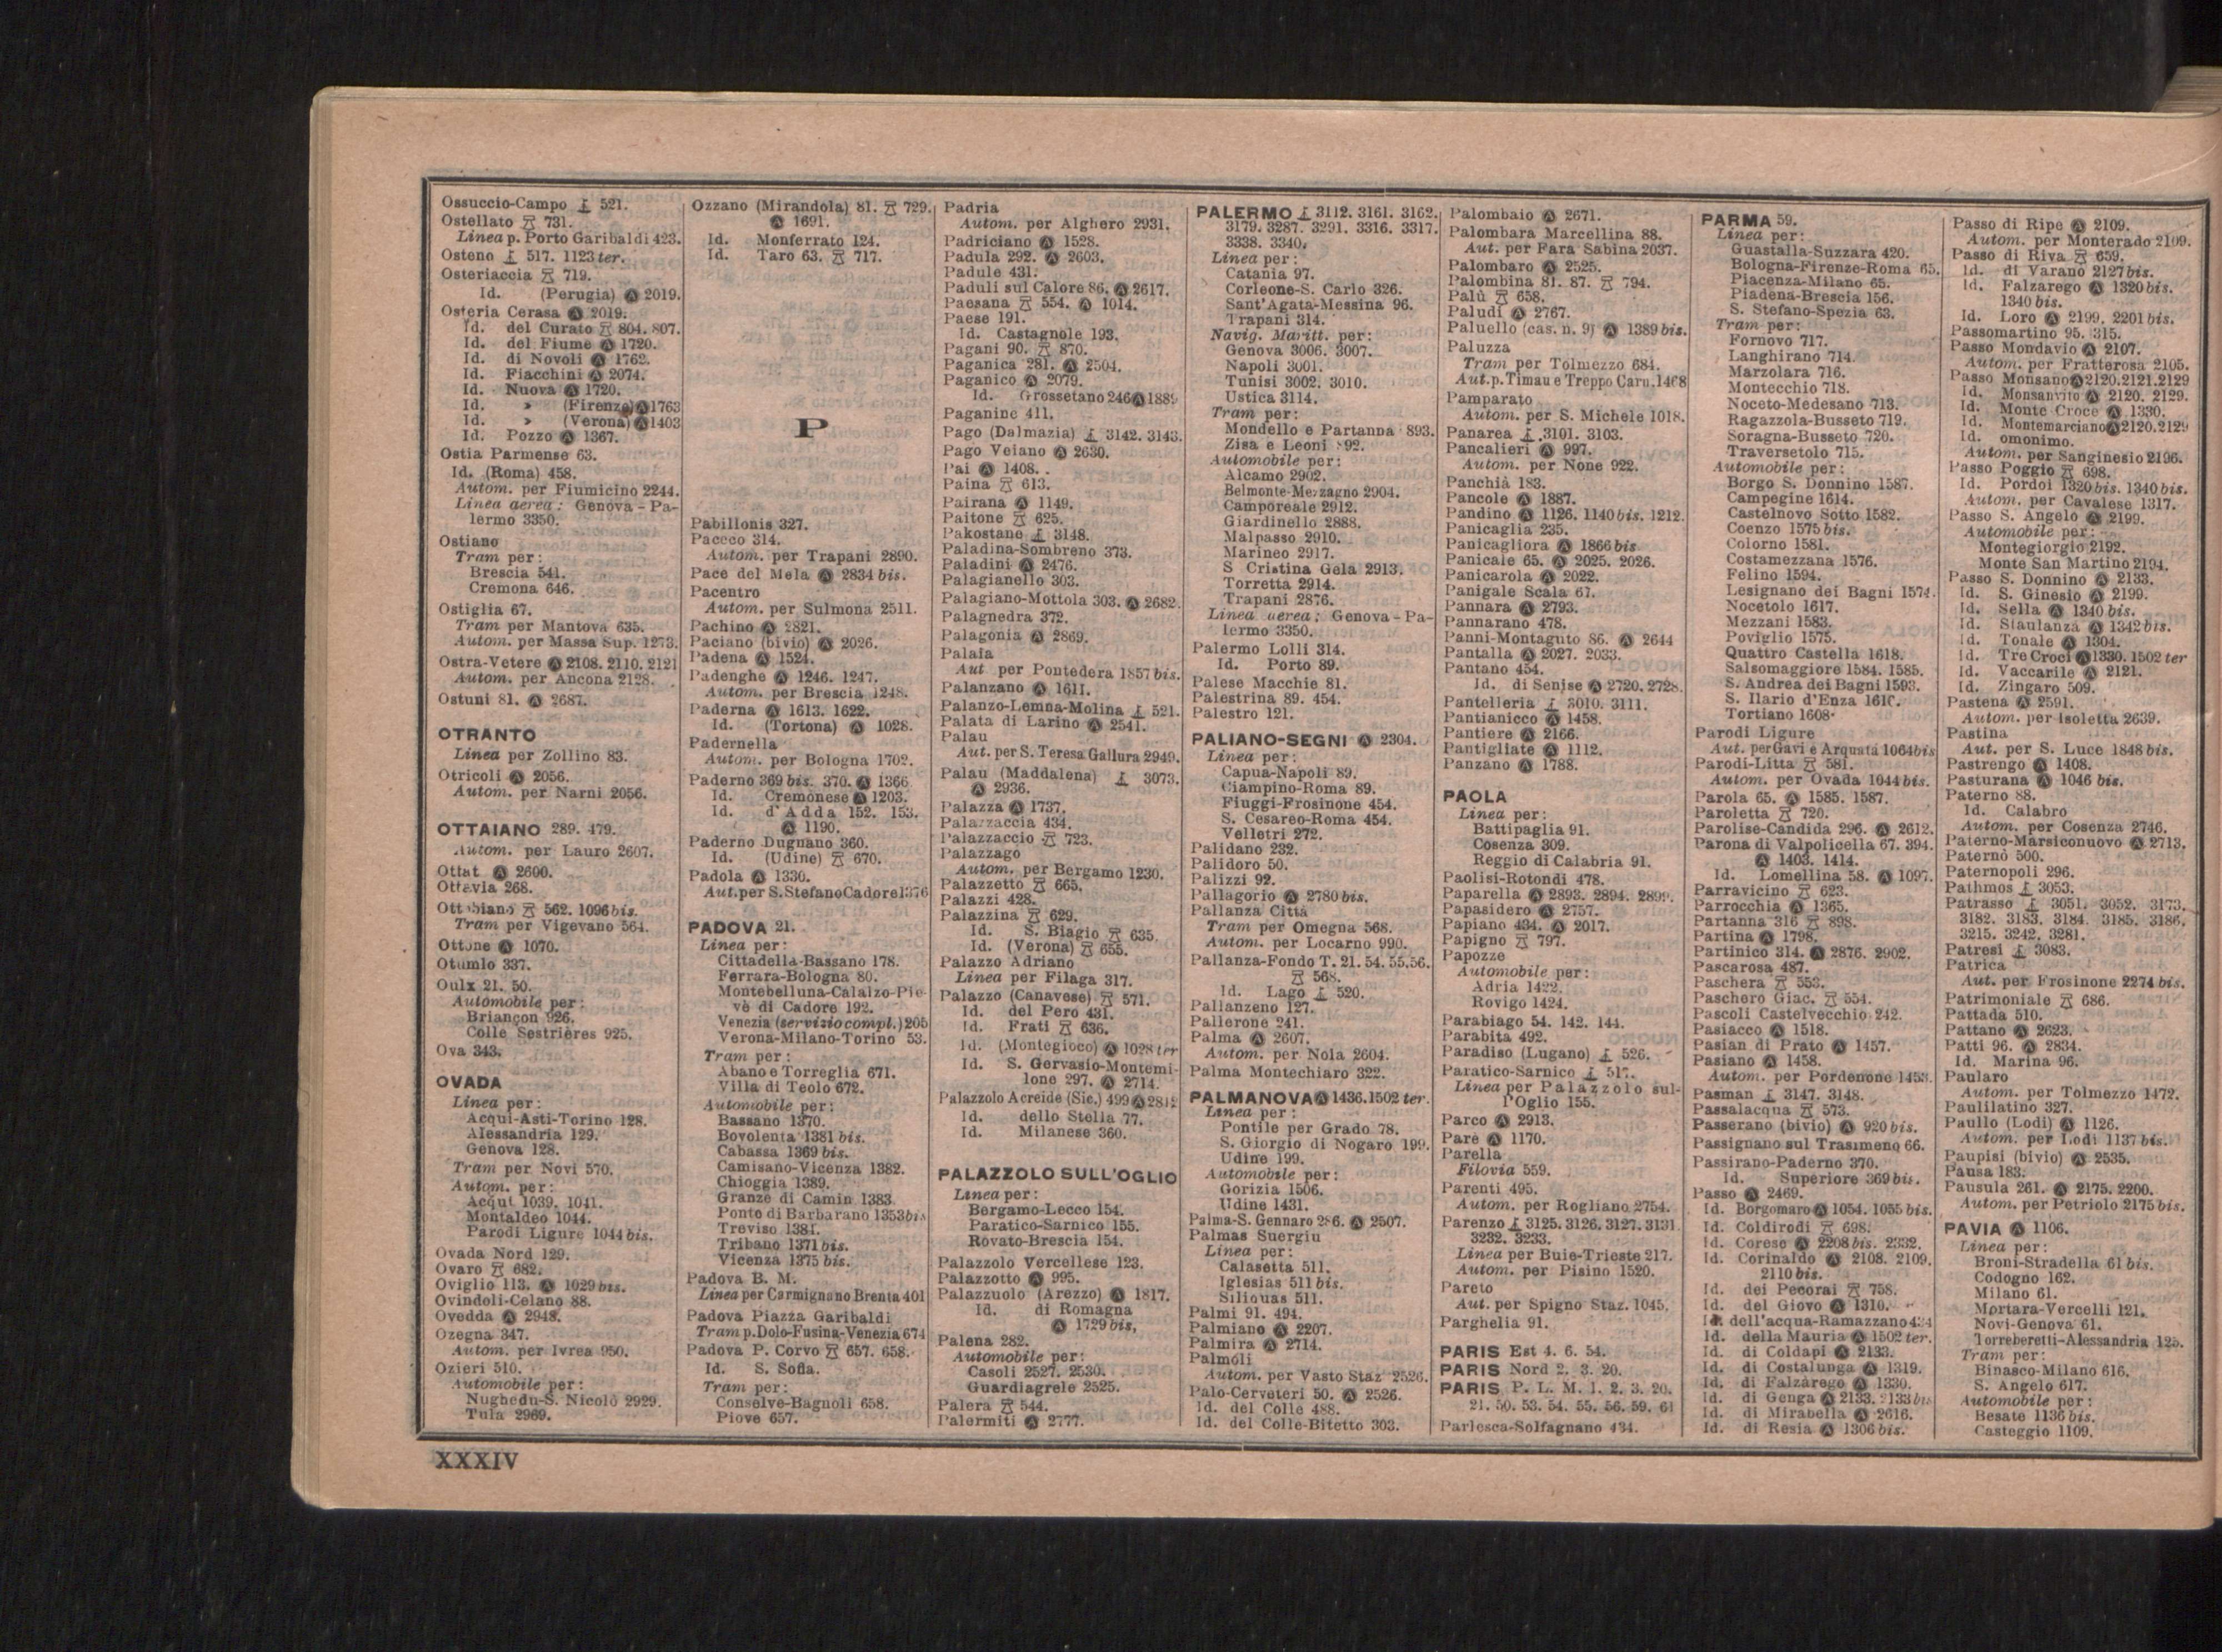 Ossuccio-Campo 521.
Ostellato 731.
Linea p. Porto Garibaldi 423.
Osteno 517. 1123 ter.
Osteriaccia 719.
Id. (Perugia) Ⓐ 2019.
Osteria Cerasa Ⓐ 2019.
Id. del Curato 804. 807.
Id. del Fiume Ⓐ 1720.
Id. di Novoli Ⓐ 1762.
Id. Fiacchini Ⓐ 2074.
Id. Nuova Ⓐ 1720.
Id. » (Firenze) Ⓐ 1763
Id. » (Verona) Ⓐ 1403
Id. Pozzo Ⓐ 1367.
Ostia Parmense 63.
Id. (Roma) 458.
Autom. per Fiumicino 2244.
Linea aerea: Genova-Pa-
lermo 3350.
Ostiano
Tram per:
Brescia 541.
Cremona 646.
Ostiglia 67.
Tram per Mantova 635.
Autom. per Massa Sup. 1273.
Ostra-Vetere Ⓐ 2108. 2110. 2121
Autom. per Ancona 2128.
Ostuni 81. Ⓐ 2687.
OTRANTO
Linea per Zollino 83.
Otricoli Ⓐ 2056.
Autom. per Narni 2056.
OTTAIANO 289. 479.
Autom. per Lauro 2607.
Ottat Ⓐ 2600.
Ottavia 268.
Ottobiano 562. 1096 bis.
Tram per Vigevano 564.
Ottone Ⓐ 1070.
Otumlo 337.
Oulx 21. 50.
Automobile per:
Briançon 926.
Colle Sestrières 925.
Ova 343.
OVADA
Linea per:
Acqui-Asti-Torino 128.
Alessandria 129.
Genova 128.
Tram per Novi 570.
Autom. per:
Acqui 1039. 1041.
Montaldeo 1044.
Parodi Ligure 1044 bis.
Ovada Nord 129.
Ovaro 682.
Oviglio 113. Ⓐ 1029 bis.
Ovindoli-Celano 88.
Ovodda Ⓐ 2948.
Ozegna 347.
Autom. per Ivrea 950.
Ozieri 510.
Automobile per:
Nughedu-S. Nicolò 2929.
Tula 2969.
Ozzano (Mirandola) 81. 729.
Ⓐ 1691.
Id. Monferrato 124.
Id. Taro 63. 717.
P
Pabillonis 327.
Paceco 314.
Autom. per Trapani 2890.
Pace del Mela Ⓐ 2834 bis.
Pacentro
Autom. per Sulmona 2511.
Pachino Ⓐ 2821.
Paciano (bivio) Ⓐ 2026.
Padena Ⓐ 1524.
Padenghe Ⓐ 1246. 1247.
Autom. per Brescia 1248.
Paderna Ⓐ 1613. 1622.
Id. (Tortona) Ⓐ 1028.
Padernella
Autom. per Bologna 1702.
Paderno 369 bis. 370. Ⓐ 1366
Id. Cremonese Ⓐ 1203.
Id. d'Adda 152. 153.
Ⓐ 1190.
Paderno Dugnano 360.
Id. (Udine) 670.
Padola Ⓐ 1330.
Aut. per S. Stefano Cadore 1376
PADOVA 21.
Linea per:
Cittadella-Bassano 178.
Ferrara-Bologna 80.
Montebelluna-Calalzo-Pie-
ve di Cadore 192.
Venezia (servizio compl.) 205
Verona-Milano-Torino 53.
Tram per:
Abano e Torreglia 671.
Villa di Teolo 672.
Automobile per:
Bassano 1370.
Bovolenta 1381 bis.
Cabassa 1369 bis.
Camisano-Vicenza 1382.
Chioggia 1389.
Granze di Camin 1383.
Ponte di Barbarano 1353 bis
Treviso 1381.
Tribano 1371 bis.
Vicenza 1375 bis.
Padova B. M.
Linea per Carmignano Brenta 401
Padova Piazza Garibaldi
Tram p. Dolo-Fusina-Venezia 674
Padova P. Corvo 657. 658.
Id. S. Sofia.
Tram per:
Conselve-Bagnoli 658.
Piove 657.
Padria
Autom. per Alghero 2931.
Padriciano Ⓐ 1528.
Padula 292. Ⓐ 2603.
Padule 431.
Paduli sul Calore 86. Ⓐ 2617.
Paesana 554. Ⓐ 1014.
Paese 191.
Id. Castagnole 193.
Pagani 90. 870.
Paganica 281. Ⓐ 2504.
Paganico Ⓐ 2079.
Id. Grossetano 246 Ⓐ 1889
Paganine 411.
Pago (Dalmazia) 3142. 3143.
Pago Veiano Ⓐ 2630.
Pai Ⓐ 1408.
Paina 613.
Pairana Ⓐ 1149.
Paitone 625.
Pakostane 3148.
Paladina-Sombreno 373.
Paladini Ⓐ 2476.
Palagianello 303.
Palagiano-Mottola 303. Ⓐ 2682.
Palagnedra 372.
Palagonia Ⓐ 2869.
Palaia
Aut per Pontedera 1857 bis.
Palanzano Ⓐ 1611.
Palanzo-Lemna-Molina 521.
Palata di Larino Ⓐ 2541.
Palau
Aut. per S. Teresa Gallura 2949.
Palau (Maddalena) 3073.
Ⓐ 2936.
Palazza Ⓐ 1737.
Palazzaccia 434.
Palazzaccio 723.
Palazzago
Autom. per Bergamo 1230.
Palazzetto 665.
Palazzi 428.
Palazzina 629.
Id. S. Biagio 635.
Id. (Verona) 655.
Palazzo Adriano
Linea per Filaga 317.
Palazzo (Canavese) 571.
Id. del Pero 431.
Id. Frati 636.
Id. (Montegioco) Ⓐ 1028 ter
Id. S. Gervasio-Montemi-
lone 297. Ⓐ 2714.
Palazzolo Acreide (Sic.) 499 Ⓐ 2812
Id. dello Stella 77.
Id. Milanese 360.
PALAZZOLO SULL'OGLIO
Linea per:
Bergamo-Lecco 154.
Paratico-Sarnico 155.
Rovato-Brescia 154.
Palazzolo Vercellese 123.
Palazzotto Ⓐ 995.
Palazzuolo (Arezzo) Ⓐ 1817.
Id. di Romagna
Ⓐ 1729 bis.
Palena 282.
Automobile per:
Casoli 2527. 2530.
Guardiagrele 2525.
Palera 544.
Palermiti Ⓐ 2777.
PALERMO 3112. 3161. 3162.
3179. 3287. 3291. 3316. 3317.
3338. 3340.
Linea per:
Catania 97.
Corleone-S. Carlo 326.
Sant'Agata-Messina 96.
Trapani 314.
Navig. Maritt. per:
Genova 3006. 3007.
Napoli 3001.
Tunisi 3002. 3010.
Ustica 3114.
Tram per:
Mondello e Partanna 893.
Zisa e Leoni 892.
Automobile per:
Alcamo 2902.
Belmonte-Mezzagno 2904.
Camporeale 2912.
Giardinello 2888.
Malpasso 2910.
Marineo 2917.
S Cristina Gela 2913.
Torretta 2914.
Trapani 2876.
Linea aerea: Genova-Pa-
lermo 3350.
Palermo Lolli 314.
Id. Porto 89.
Palese Macchie 81.
Palestrina 89. 454.
Palestro 121.
PALIANO-SEGNI Ⓐ 2304.
Linea per:
Capua-Napoli 89.
Ciampino-Roma 89.
Fiuggi-Frosinone 454.
S. Cesareo-Roma 454.
Velletri 272.
Palidano 232.
Palidoro 50.
Palizzi 92.
Pallagorio Ⓐ 2780 bis.
Pallanza Città
Tram per Omegna 568.
Autom. per Locarno 990.
Pallanza-Fondo T. 21. 54. 55. 56.
568.
Id. Lago 520.
Pallanzeno 127.
Pallerone 241.
Palma Ⓐ 2607.
Autom. per Nola 2604.
Palma Montechiaro 322.
PALMANOVA Ⓐ 1436. 1502 ter.
Linea per:
Pontile per Grado 78.
S. Giorgio di Nogaro 199.
Udine 199.
Automobile per:
Gorizia 1506.
Udine 1431.
Palma-S. Gennaro 286. Ⓐ 2507.
Palmas Suergiu
Linea per:
Calasetta 511.
Iglesias 511 bis.
Siliquas 511.
Palmi 91. 494.
Palmiano Ⓐ 2207.
Palmira Ⓐ 2714.
Palmòli
Autom. per Vasto Staz 2526.
Palo-Cerveteri 50. Ⓐ 2526.
Id. del Colle 488.
Id. del Colle-Bitetto 303.
Palombaio Ⓐ 2671.
Palombara Marcellina 88.
Aut. per Fara Sabina 2037.
Palombaro Ⓐ 2525.
Palombina 81. 87. 794.
Palù 658.
Paludi Ⓐ 2767.
Paluello (cas. n. 9) Ⓐ 1389 bis.
Paluzza
Tram per Tolmezzo 684.
Aut. p. Timau e Treppo Carn. 1468
Pamparato
Autom. per S. Michele 1018.
Panarea 3101. 3103.
Pancalieri Ⓐ 997.
Autom. per None 922.
Panchià 183.
Pancole Ⓐ 1887.
Pandino Ⓐ 1126. 1140 bis. 1212.
Panicaglia 235.
Panicagliora Ⓐ 1866 bis
Panicale 65. Ⓐ 2025. 2026.
Panicarola Ⓐ 2022.
Panigale Scala 67.
Pannara Ⓐ 2793.
Pannarano 478.
Panni-Montaguto 86. Ⓐ 2644
Pantalla Ⓐ 2027. 2033.
Pantano 454.
Id. di Senise Ⓐ 2720. 2728.
Pantelleria 3010. 3111.
Pantianicco Ⓐ 1458.
Pantiere Ⓐ 2166.
Pantigliate Ⓐ 1112.
Panzano Ⓐ 1788.
PAOLA
Linea per:
Battipaglia 91.
Cosenza 309.
Reggio di Calabria 91.
Paolisi-Rotondi 478.
Paparella Ⓐ 2893. 2894. 2899.
Papasidero Ⓐ 2757.
Papiano 434. Ⓐ 2017.
Papigno 797.
Papozze
Automobile per:
Adria 1422.
Rovigo 1424.
Parabiago 54. 142. 144.
Parabita 492.
Paradiso (Lugano) 526.
Paratico-Sarnico 517.
Linea per Palazzolo sul-
l'Oglio 155.
Parco Ⓐ 2913.
Parè Ⓐ 1170.
Parella
Filovia 559.
Parenti 495.
Autom. per Rogliano 2754.
Parenzo 3125. 3126. 3127. 3131
3232. 3233.
Linea per Buie-Trieste 217.
Autom. per Pisino 1520.
Pareto
Aut. per Spigno Staz. 1045.
Parghelia 91.
PARIS Est 4. 6. 54.
PARIS Nord 2. 3. 20.
PARIS P. L. M. 1. 2. 3. 20.
21. 50. 53. 54. 55. 56. 59. 61
Parlesca-Solfagnano 434.
PARMA 59.
Linea per:
Guastalla-Suzzara 420.
Bologna-Firenze-Roma 65.
Piacenza-Milano 65.
Piadena-Brescia 156.
S. Stefano-Spezia 63.
Tram per:
Fornovo 717.
Langhirano 714.
Marzolara 716.
Montecchio 718.
Noceto-Medesano 713.
Ragazzola-Busseto 719.
Soragna-Busseto 720.
Traversetolo 715.
Automobile per:
Borgo S. Donnino 1587.
Campegine 1614.
Castelnovo Sotto 1582.
Coenzo 1575 bis.
Colorno 1581.
Costamezzana 1576.
Felino 1594.
Lesignano dei Bagni 1574.
Nocetolo 1617.
Mezzani 1583.
Poviglio 1575.
Quattro Castella 1618.
Salsomaggiore 1584. 1585.
S. Andrea dei Bagni 1593.
S. Ilario d'Enza 1616.
Tortiano 1608.
Parodi Ligure
Aut. per Gavi e Arquata 1064 bis
Parodi-Litta 581.
Autom. per Ovada 1044 bis.
Parola 65. Ⓐ 1585. 1587.
Paroletta 720.
Parolise-Candida 296. Ⓐ 2612.
Parona di Valpolicella 67. 394.
Ⓐ 1403. 1414.
Id. Lomellina 58. Ⓐ 1097.
Parravicino 623.
Parrocchia Ⓐ 1365.
Partanna 316 898.
Partina Ⓐ 1798.
Partinico 314. Ⓐ 2876. 2902.
Pascarosa 487.
Paschera 553.
Paschero Giac. 554.
Pascoli Castelvecchio 242.
Pasiacco Ⓐ 1518.
Pasian di Prato Ⓐ 1457.
Pasiano Ⓐ 1458.
Autom. per Pordenone 1453.
Pasman 3147. 3148.
Passalacqua 573.
Passerano (bivio) Ⓐ 920 bis.
Passignano sul Trasimeno 66.
Passirano-Paderno 370.
Id. Superiore 369 bis.
Passo Ⓐ 2469.
Id. Borgomaro Ⓐ 1054. 1055 bis.
Id. Coldirodi 698.
Id. Corese Ⓐ 2208 bis. 2332.
Id. Corinaldo Ⓐ 2108. 2109.
2110 bis.
Id. dei Pecorai 758.
Id. del Giovo Ⓐ 1310.
Id. dell'acqua-Ramazzano 434
Id. della Mauria Ⓐ 1502 ter.
Id. di Coldapi Ⓐ 2133.
Id. di Costalunga Ⓐ 1319.
Id. di Falzàrego Ⓐ 1330.
Id. di Genga Ⓐ 2133. 2133 bis
Id. di Mirabella Ⓐ 2616.
Id. di Resia Ⓐ 1306 bis.
Passo di Ripe Ⓐ 2109.
Autom. per Monterado 2109.
Passo di Riva 659.
Id. di Varano 2127 bis.
Id. Falzarego Ⓐ 1320 bis.
1340 bis.
Id. Loro Ⓐ 2199. 2201 bis.
Passomartino 95. 315.
Passo Mondavio Ⓐ 2107.
Autom. per Fratterosa 2105.
Passo Monsano Ⓐ 2120. 2121. 2129
Id. Monsanvito Ⓐ 2120. 2129.
Id. Monte Croce Ⓐ 1330.
Id. Montemarciano Ⓐ 2120. 2129
Id. omonimo.
Autom. per Sanginesio 2196.
Passo Poggio 698.
Id. Pordoi 1320 bis. 1340 bis.
Autom. per Cavalese 1317.
Passo S. Angelo Ⓐ 2199.
Automobile per:
Montegiorgio 2192.
Monte San Martino 2194.
Passo S. Donnino Ⓐ 2133.
Id. S. Ginesio Ⓐ 2199.
Id. Sella Ⓐ 1340 bis.
Id. Staulanza Ⓐ 1342 bis.
Id. Tonale Ⓐ 1304.
Id. Tre Croci Ⓐ 1330. 1502 ter
Id. Vaccarile Ⓐ 2121.
Id. Zingaro 509.
Pastena Ⓐ 2591.
Autom. per Isoletta 2639.
Pastina
Aut. per S. Luce 1848 bis.
Pastrengo Ⓐ 1408.
Pasturana Ⓐ 1046 bis.
Paterno 88.
Id. Calabro
Autom. per Cosenza 2746.
Paterno-Marsiconuovo Ⓐ 2713.
Paternò 500.
Paternopoli 296.
Pathmos 3053.
Patrasso 3051. 3052. 3173.
3182. 3183. 3184. 3185. 3186.
3215. 3242. 3281.
Patresi 3083.
Patrica
Aut. per Frosinone 2274 bis.
Patrimoniale 686.
Pattada 510.
Pattano Ⓐ 2623.
Patti 96. Ⓐ 2834.
Id. Marina 96.
Paularo
Autom. per Tolmezzo 1472.
Paulilatino 327.
Paullo (Lodi) Ⓐ 1126.
Autom. per Lodi 1137 bis.
Paupisi (bivio) Ⓐ 2535.
Pausa 183.
Pausula 261. Ⓐ 2175. 2200.
Autom. per Petriolo 2175 bis.
PAVIA Ⓐ 1106.
Linea per:
Broni-Stradella 61 bis.
Codogno 162.
Milano 61.
Mortara-Vercelli 121.
Novi-Genova 61.
Torreberetti-Alessandria 125.
Tram per:
Binasco-Milano 616.
S. Angelo 617.
Automobile per:
Besate 1136 bis.
Casteggio 1109.
XXXIV